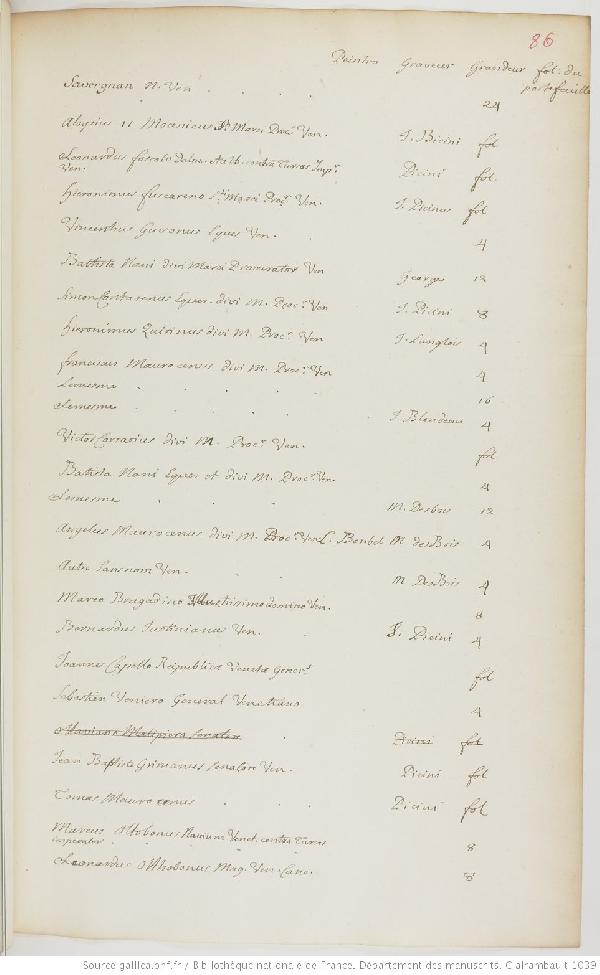 86
Peintre Graveur Grandeur fol: du portefeuille
Savorgnan N. Ven . . . . 24
Aloysius II Mocenicus Sti Marci Procr. Ven. J. Picini fol
Leonardus foscolo Dalm. Alb. contra Turcas Impr. Ven. Picini fol.
Hieronimus fuscareno Sti Marci Procr. Ven. J. Picinus fol
Vincentius Eques Ven. 4
Battista Nani divi Marci Procurator Ven George 12
Simon Contarenus Eques. divi M. Procr. Ven J. Picini 8
Hieronimus Quirinus divi M. Procr. Ven J. Langlois 4
franciscus Maurocenus divi M. Procr. Ven 4
Lemesme . . . . 16
Lemesme . . . . J. Blondeau 4
Victor Corrarius divi M. Procr. Ven. fol
Batista Nani Eques et divi M. Procr. Ven. 4
Lemesme . . . M. Desbois 12
Angelus Maurocenus divi M. Procr. Ven. L. M. desBois 4
Autre sans nom Ven. . . M DesBois 4
Marco Bragadino Illustrissimo domino Ven. 8
Bernardus Justinianus Ven. J. Picini 4
Joannes Capello Reipublicæ Venetæ Generl. fol
Sebastien Veniero General Venetiano 4
Malipiero Senator . Picini fol
Jean Baptiste Grimanus Senatore Ven. Picini fol
Tomas Maurocenus . . . Picini fol
Marcus Otthobonus Navium Venet. contra Turcas imperator . . . . 8
Leonardus Otthobonus Mag. Ven. Canc. 8
Source gallica.bnf.fr / Bibliothèque nationale de France. Département des manuscrits. Clairambault 1039